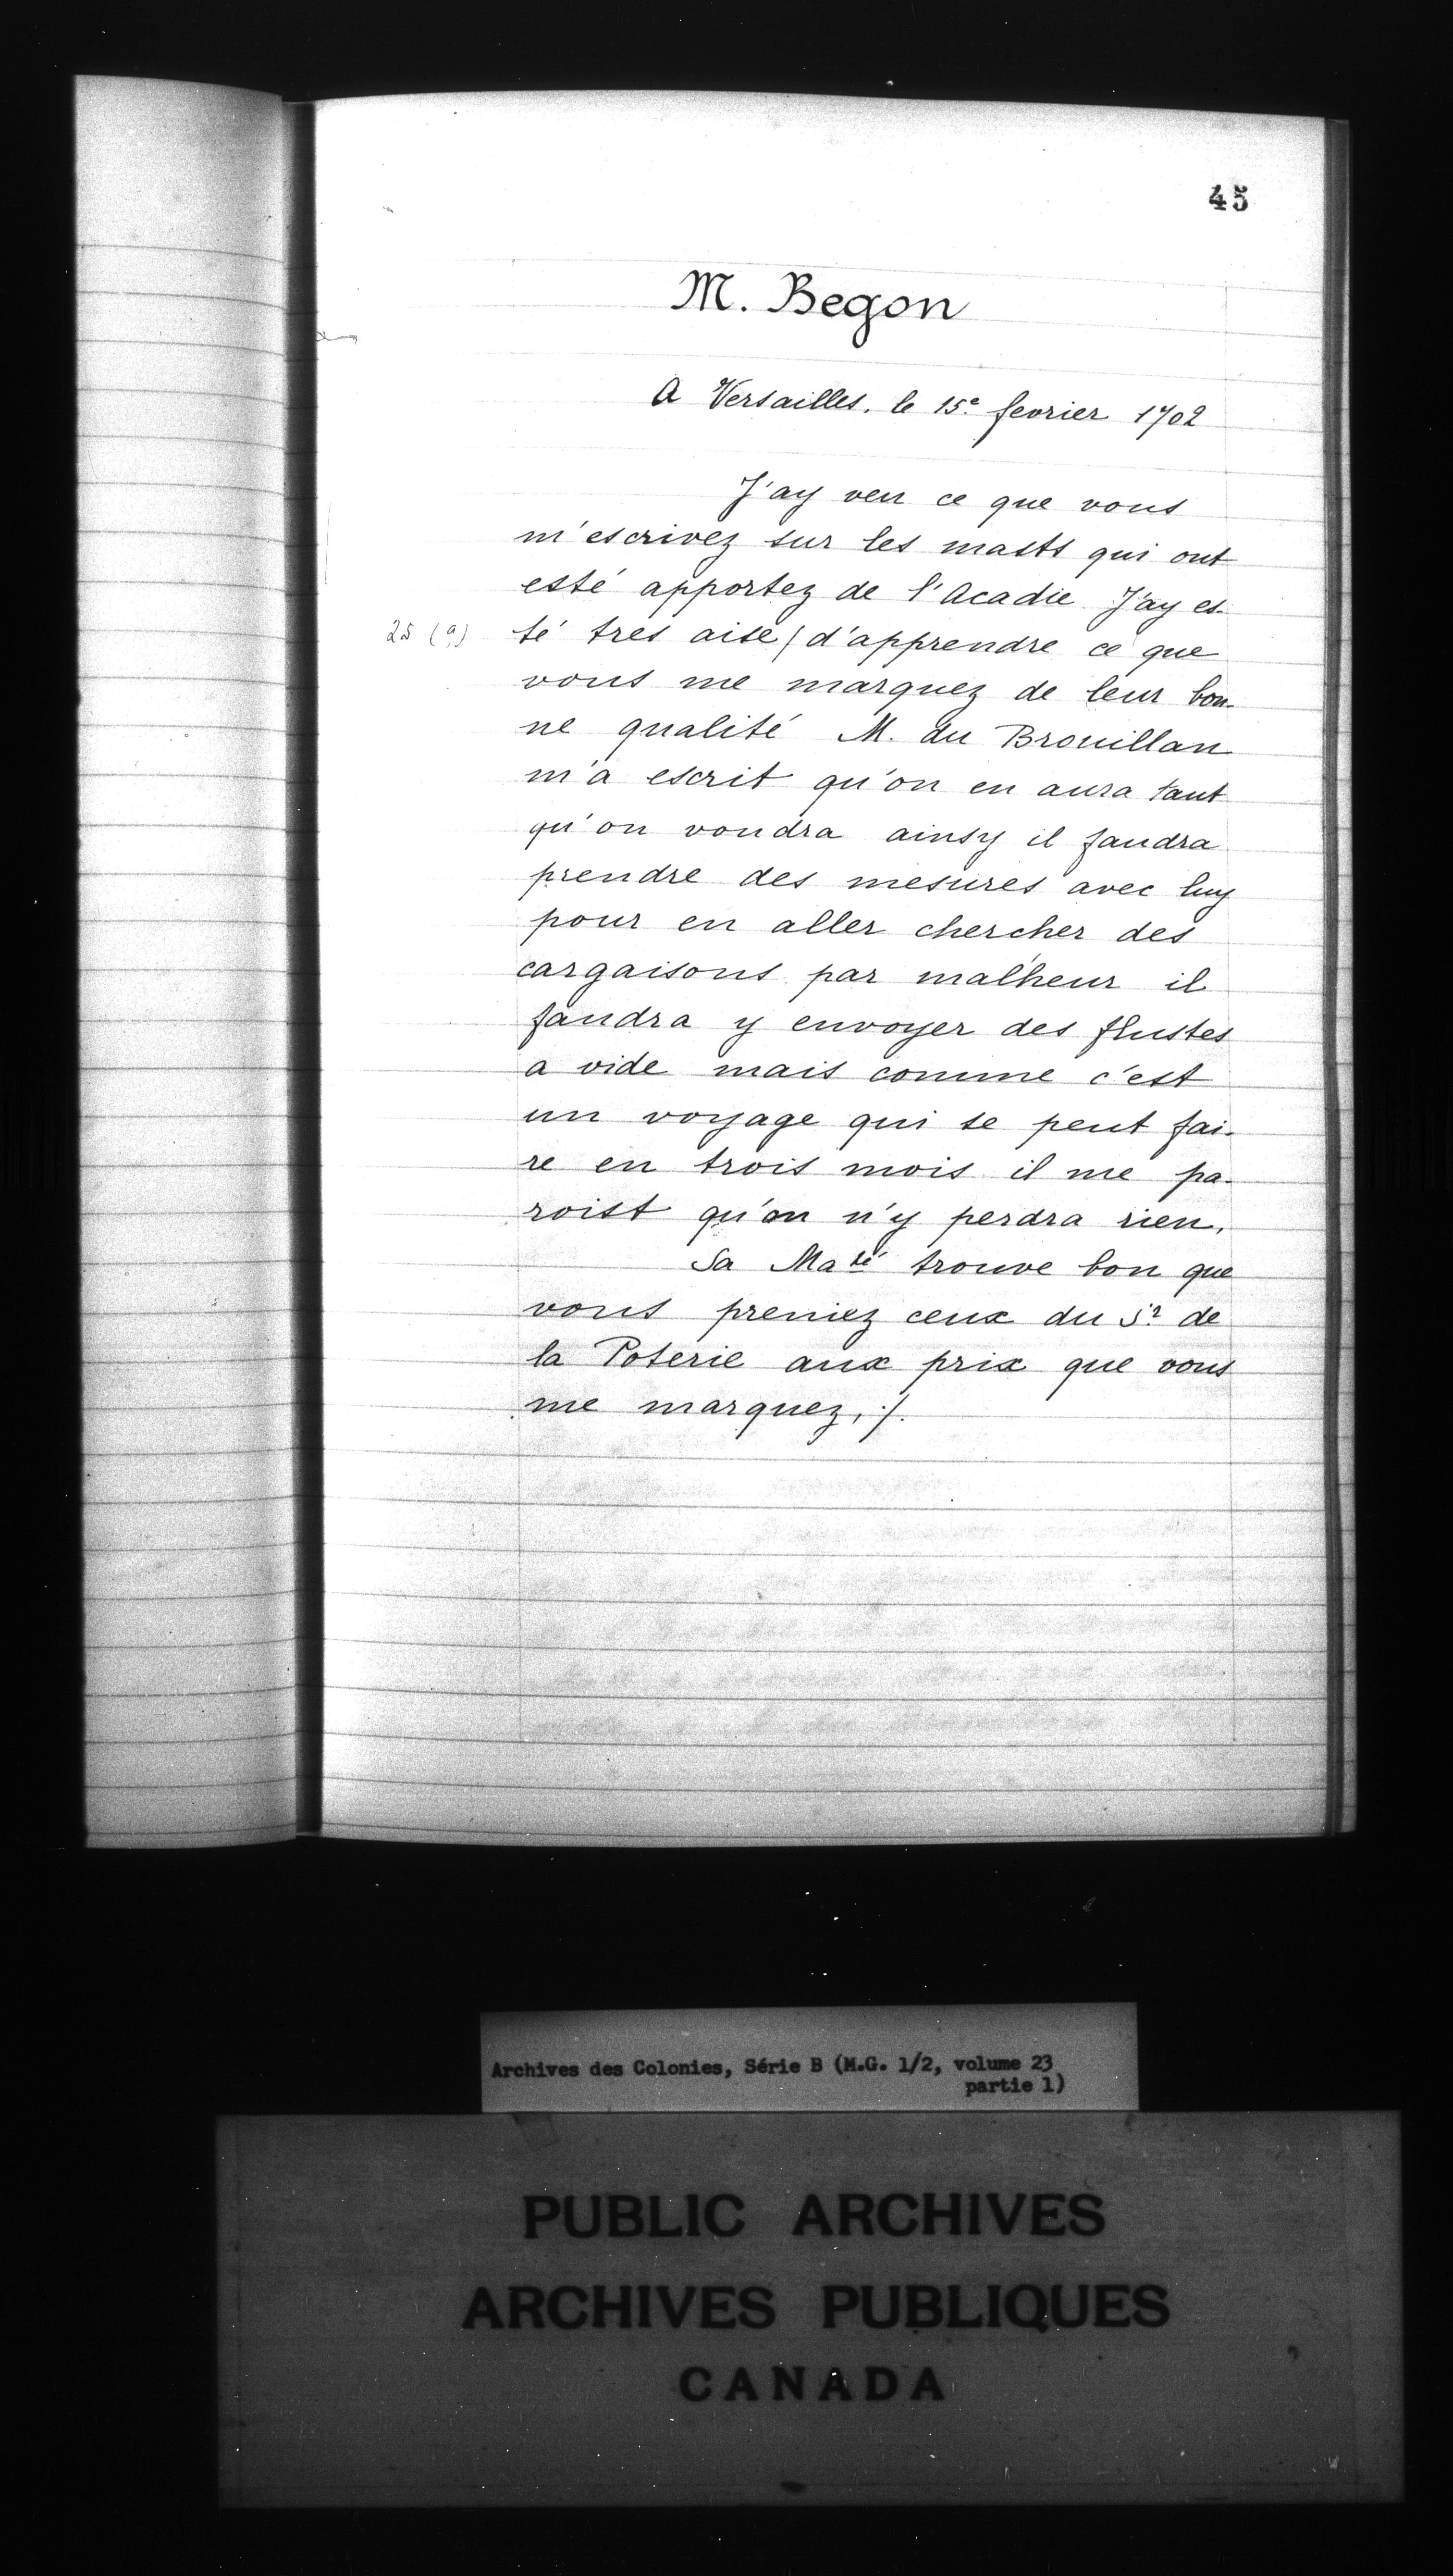 45
M. Begon
A Versailles. le 15e fevrier 1702
J'ay veu ce que vous
m'escrivez sur les masts qui ont
esté apportez de l'Acadie J'ay es-
25 (a) té tres aise / d'apprendre ce que
vous me marquez de leur bon-
ne qualité M. du Brouillan
m'a escrit qu'on en aura tant
qu'on voudra ainsy il faudra
prendre des mesures avec luy
pour en aller chercher des
cargaisons par malheur il
faudra y envoyer des flustes
a vide mais comme c'est
un voyage qui se peut fai-
re en trois mois il me pa-
roist qu'on n'y perdra rien.
Sa Maté trouve bon que
vous preniez ceux du Sr de
la Poterie aux prix que vous
me marquez, ./.
Archives des Colonies, Série B (M.G. 1/2, volume 23
partie 1)
PUBLIC ARCHIVES
ARCHIVES PUBLIQUES
CANADA